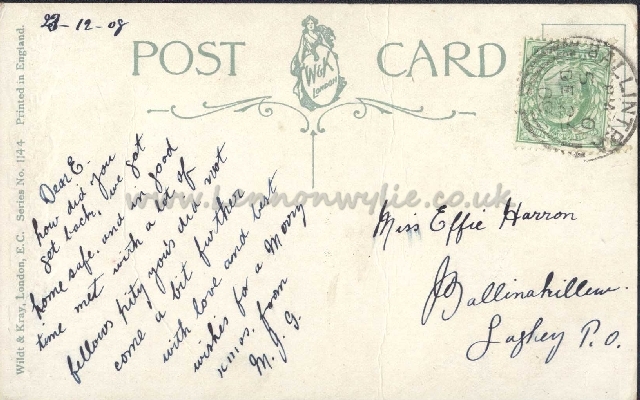 23-12-08
POST CARD
W&K
London
BALLINTRA
5
DE 23
08
Dear E-
how did you
get back, I've got
home safe. and in good
time met with a lot of
fellows pity you's did not
come a bit further
with love and best
wishes for a Merry
xmas. from
M. J. G.
Miss Effie Harron
Ballinakillew.
Laghey P.O.
www.Lennonwylie.co.uk
Wildt & Kray, London, E.C. Series No. 1144 Printed in England.